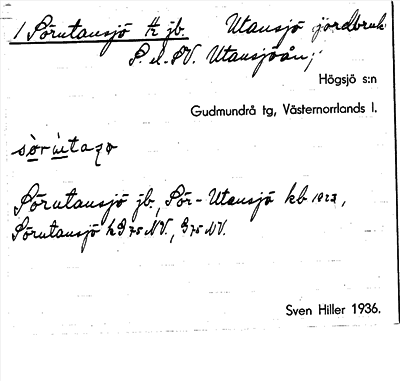 1 Sörutansjö tr jb. Utansjö jordbruk
S. el. SV. Utansjöån;
Högsjö s:n
Gudmundrå tg, Västernorrlands l.
Sörutansjö jb., Sör-Utansjö kb 1922,
Sörutansjö h G 75 NV., G 75 NV.
Sven Hiller 1936.